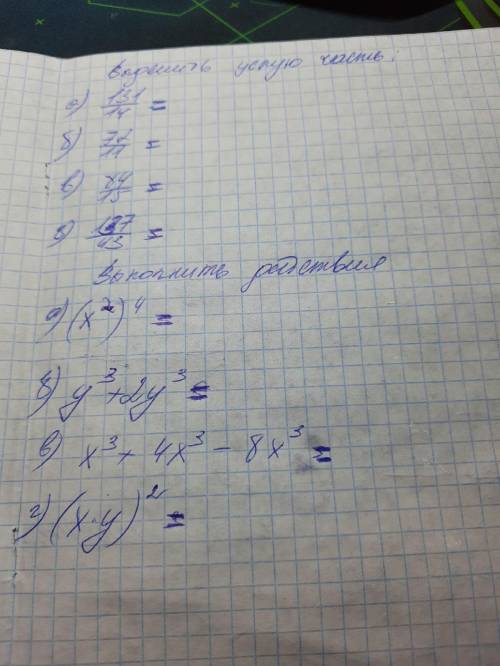 Выделить целую часть:
а) 131/14 =
б) 77/11 =
в) /15 =
г) 137/43 =
Выполнить действия
а) (x²)⁴ =
б) y³+2y³=
в) x³ + 4x³ - 8x³ =
г) (x·y)² =